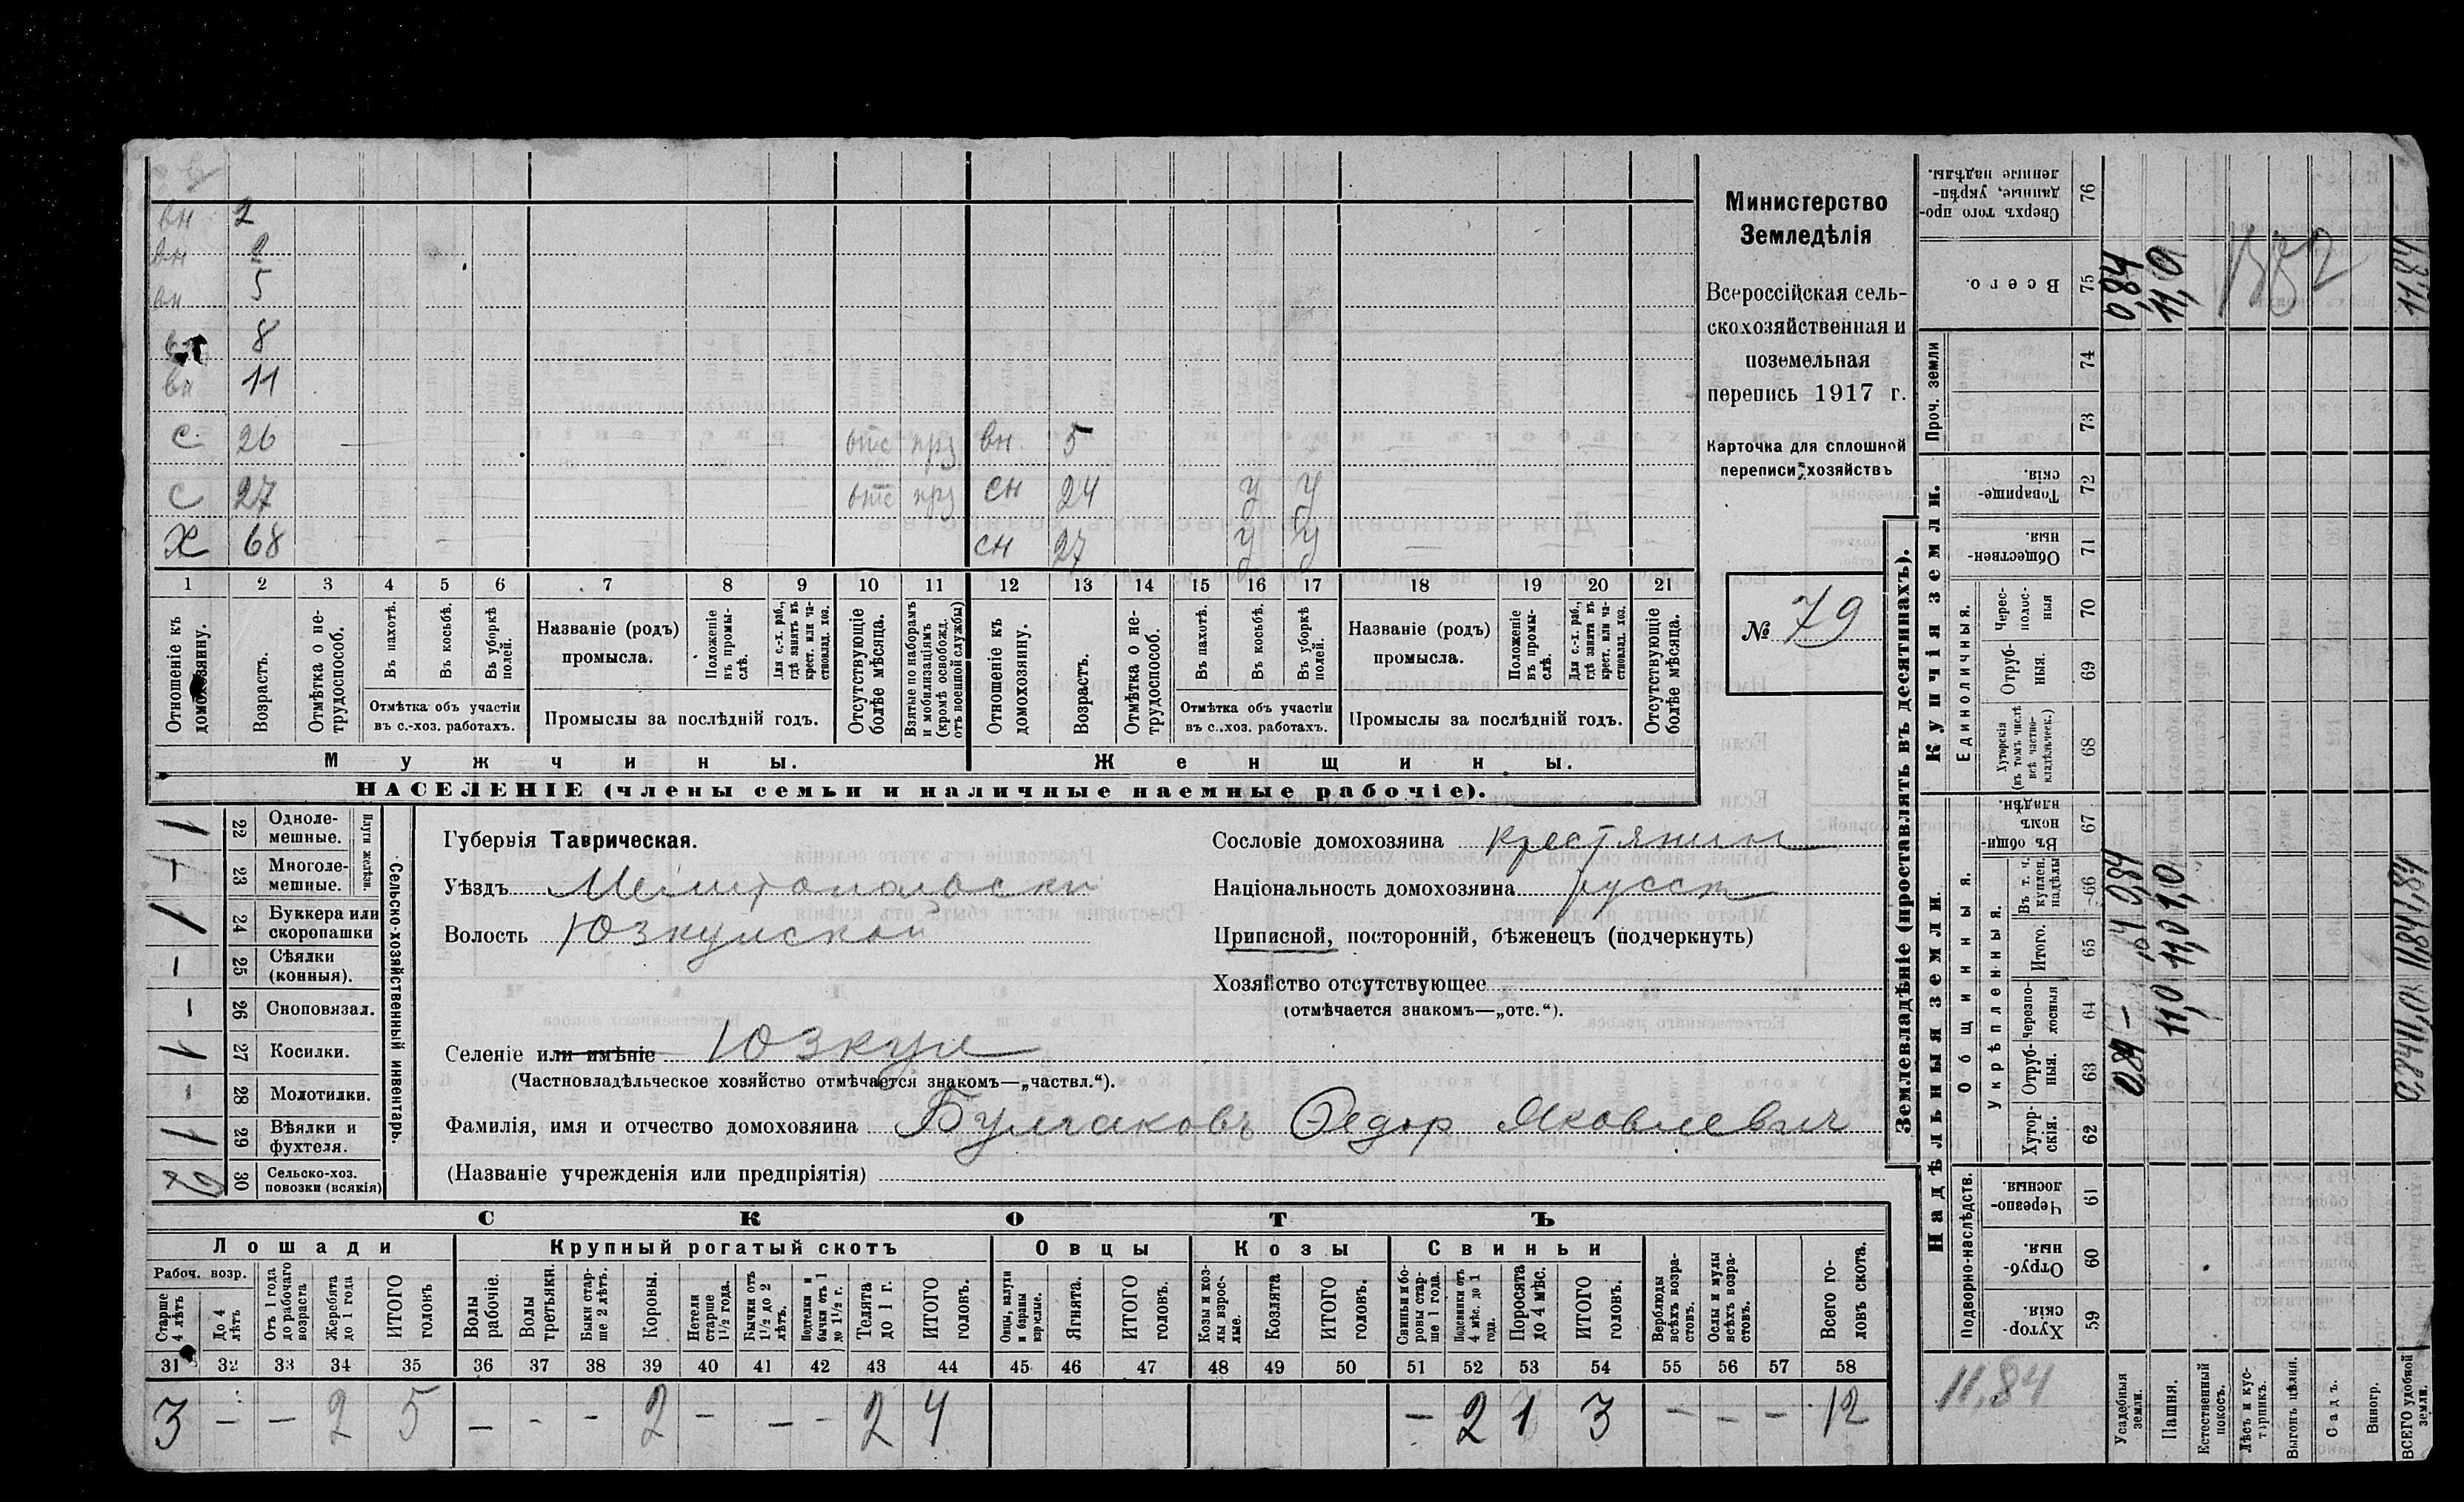 вн 2
вн 2
вн 5
8
вн 11
С 26 отс прз вн 5
С 27 отс прз сн 24 у у
Х 68 сн 27 у у
1 2 3 4 5 6 7 8 9 10 11 12 13 14 15 16 17 18 19 20 21
Отношеніе къ домохозяину.
Возрастъ.
Отмѣтка о нетрудоспособ.
Въ пахотѣ.
Въ косьбѣ.
Въ уборкѣ полей.
Отмѣтка объ участіи въ с.-хоз. работахъ.
Названіе (родъ) промысла.
Положеніе въ промыслѣ.
Для с.-х. раб., гдѣ занятъ въ крест. или частновлад. хоз.
Промыслы за послѣдній годъ.
Отсутствующіе болѣе мѣсяца.
Взятые по наборамъ и мобилизаціямъ (кромѣ освобожд. отъ военной службы)
Отношеніе къ домохозяину.
Возрастъ.
Отмѣтка о нетрудоспособ.
Въ пахотѣ.
Въ косьбѣ.
Въ уборкѣ полей.
Отмѣтка объ участіи въ с.-хоз. работахъ.
Названіе (родъ) промысла.
Положеніе въ промыслѣ.
Для с.-х. раб., гдѣ занята въ крест. или частновлад. хоз.
Промыслы за послѣдній годъ.
Отсутствующіе болѣе мѣсяца.
Мужчины. Женщины.
НАСЕЛЕНІЕ (члены семьи и наличные наемные рабочіе).
Министерство
Земледѣлія
Всероссійская сель-
скохозяйственная и
поземельная
перепись 1917 г.
Карточка для сплошной
переписи хозяйствъ
№ 79
1 22 Одноле-мешные.
1 23 Многоле-мешные.
Плуги желѣзн.
1 24 Буккера или скоропашки
– 25 Сѣялки (конныя).
– 26 Сноповязал.
1 27 Косилки.
– 28 Молотилки.
1 29 Вѣялки и фухтеля.
2 30 Сельско-хоз. повозки (всякія)
Сельско-хозяйственный инвентарь.
Губернія Таврическая.
Уѣздъ
Волость Юзкуйской
Селеніе или имѣніе Юзкуи
(Частновладѣльческое хозяйство отмѣчается знакомъ—„частвл.“).
Фамилія, имя и отчество домохозяина Булгаковъ Федор Яковлевич
(Названіе учрежденія или предпріятія)
Сословіе домохозяина крестянин
Національность домохозяина русск
Приписной, посторонній, бѣженецъ (подчеркнуть)
Хозяйство отсутствующее
(отмѣчается знакомъ—„отс.“).
СКОТЪ
Лошади Крупный рогатый скотъ Овцы Козы Свиньи
Рабоч. возр.
Старше 4 лѣтъ
До 4 лѣтъ
Отъ 1 года до рабочаго возраста
Жеребята до 1 года
ИТОГО головъ
Волы рабочіе.
Волы третьяки.
Быки старше 2 лѣтъ.
Коровы.
Нетели старше 1½ года.
Бычки отъ 1½ до 2 лѣтъ.
Подтелки и бычки отъ 1 до 1½ г.
Телята до 1 г.
ИТОГО головъ.
Овцы, валухи и бараны взрослые.
Ягнята.
ИТОГО головъ.
Козы и козлы взрослые.
Козлята
ИТОГО головъ.
Свиньи и боровы старше 1 года.
Подсвинки отъ 4 мѣс. до 1 года.
Поросята до 4 мѣс.
ИТОГО головъ.
Верблюды всѣхъ возрастовъ.
Ослы и мулы всѣхъ возрастовъ.
Всего головъ скота.
31 32 33 34 35 36 37 38 39 40 41 42 43 44 45 46 47 48 49 50 51 52 53 54 55 56 57 58
3 – – 2 5 – – – 2 – – – 2 4 – 2 1 3 – – – 12
Землевладѣніе (проставлять въ десятинахъ).
Надѣльныя земли. Купчія земли. Проч. земли
Подворно-наслѣдств. Общинныя. Единоличныя.
Укрѣпленныя.
Хуторскія. 59
Отрубныя. 60
Черезполосныя. 61
Хуторскія. 62
Отрубныя. 63
Черезполосныя 64
Итого. 65
Въ т. ч. куплен. надѣлы 66
Въ общинномъ владѣн. 67
Хуторскія (въ томъ числѣ всѣ частновладѣльческ.) 68
Отрубныя. 69
Черезполосныя 70
Общественныя. 71
Товарищескія. 72
73
74
Всего. 75
Сверхъ того проданные, укрѣпленные надѣлы. 76
11,84
Усадебныя земли. 0,84 – 0,84 0,84
Пашня. 11,0 11,0 11,0
Естественный покосъ.
Лѣсъ и кустарникъ.
Выгонъ цѣлин.
Садъ.
Виногр.
ВСЕГО удобной земли. 0,84 11,0 11,84 1,84 11,84